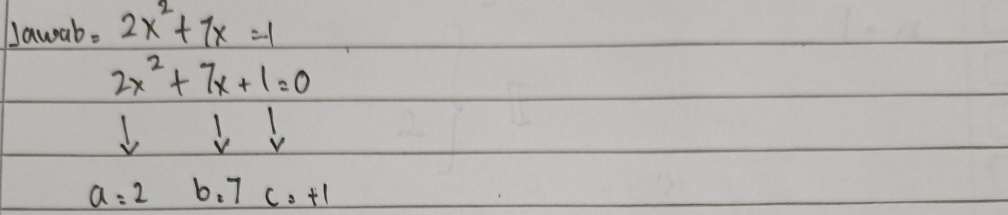 Jawab = 2x² + 7x = -1
2x² + 7x + 1 = 0
↓ ↓ ↓
a = 2 b = 7 c = +1